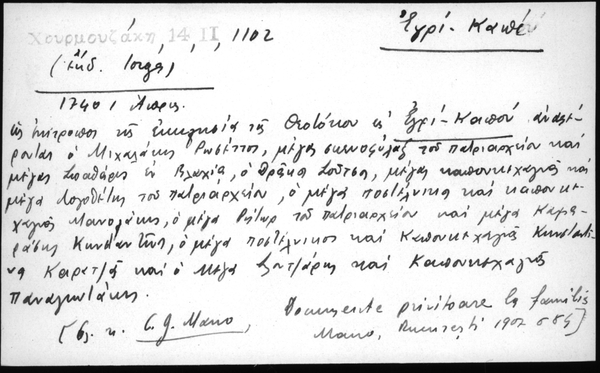 Χουρμουζάκη 14 II, 1102 Ἐγρί-Καπού
(ἐκδ. Ἰοργα)
1740, Ἀπρ.
ὡς ἐπίτροπος τῆς ἐκκλησία τῆς Θεοτόκου εἰς Ἐγρί-Καπού ἀναφέ-
ρονται ὁ Μιχαλάκης Ρωσέττος, μέγας σκευοφύλαξ τοῦ πατριαρχείου καὶ
μέγας Σπαθάρης ἐν Βλαχίᾳ, ὁ Θρᾶκης Σούτσα, μέγας καπουκεχαγιᾶς καὶ
μέγα Λογοθέτης τοῦ πατριαρχείου, ὁ μέγα ποστέλνικος καὶ καπουκε-
χαγιᾶς Μανολάκης, ὁ μέγα Ρήτωρ τοῦ πατριαρχείου καὶ μέγα Καμι-
ράσης Κωνσταντῖνος, ὁ μέγα ποστέλνικος καὶ Καπουκεχαγιᾶς Κωνσταντῖ-
να Καρατζᾶ καὶ ὁ μέγα καὶ Καπουκεχαγιᾶς
Παναγιωτάκης.
[βλ. κ. C. G. Mano, Documente privitoare la familia
Mano, Bucureşti 1907 σ 84]